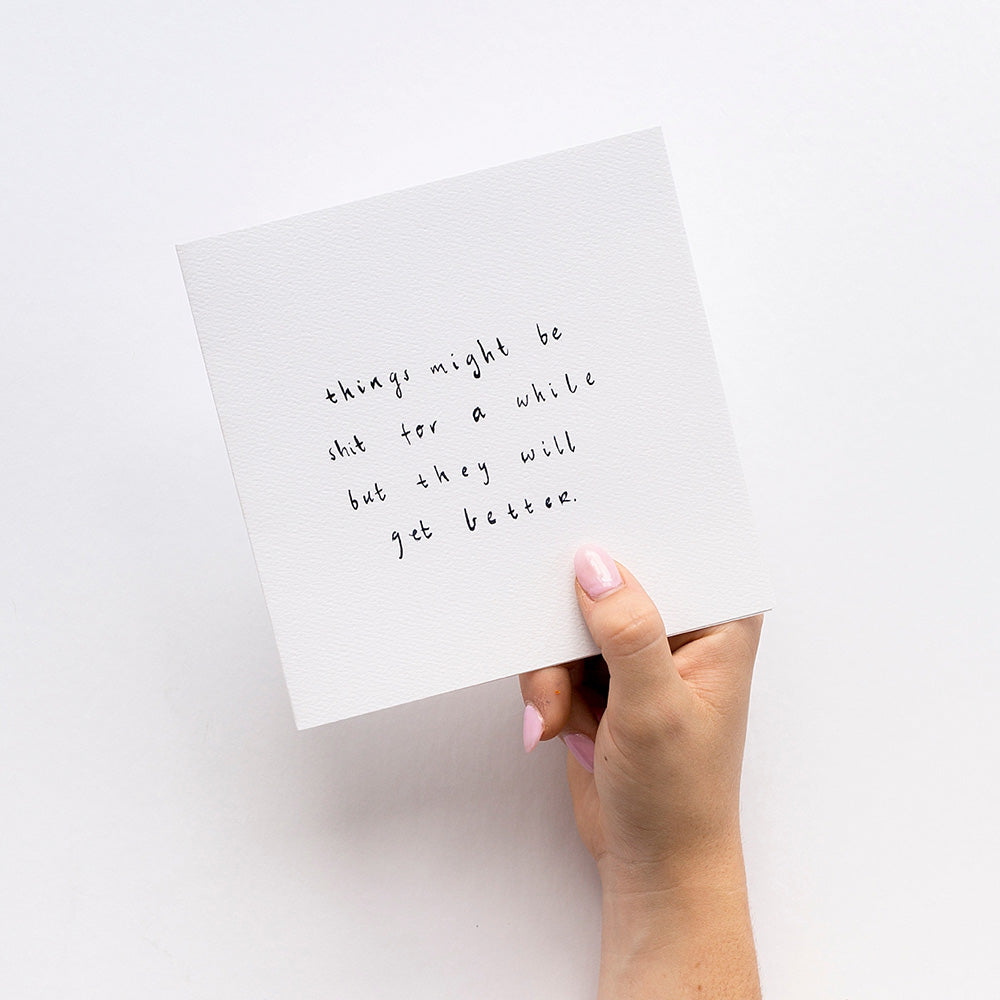 things might be
shit for a while
but they will
get better.